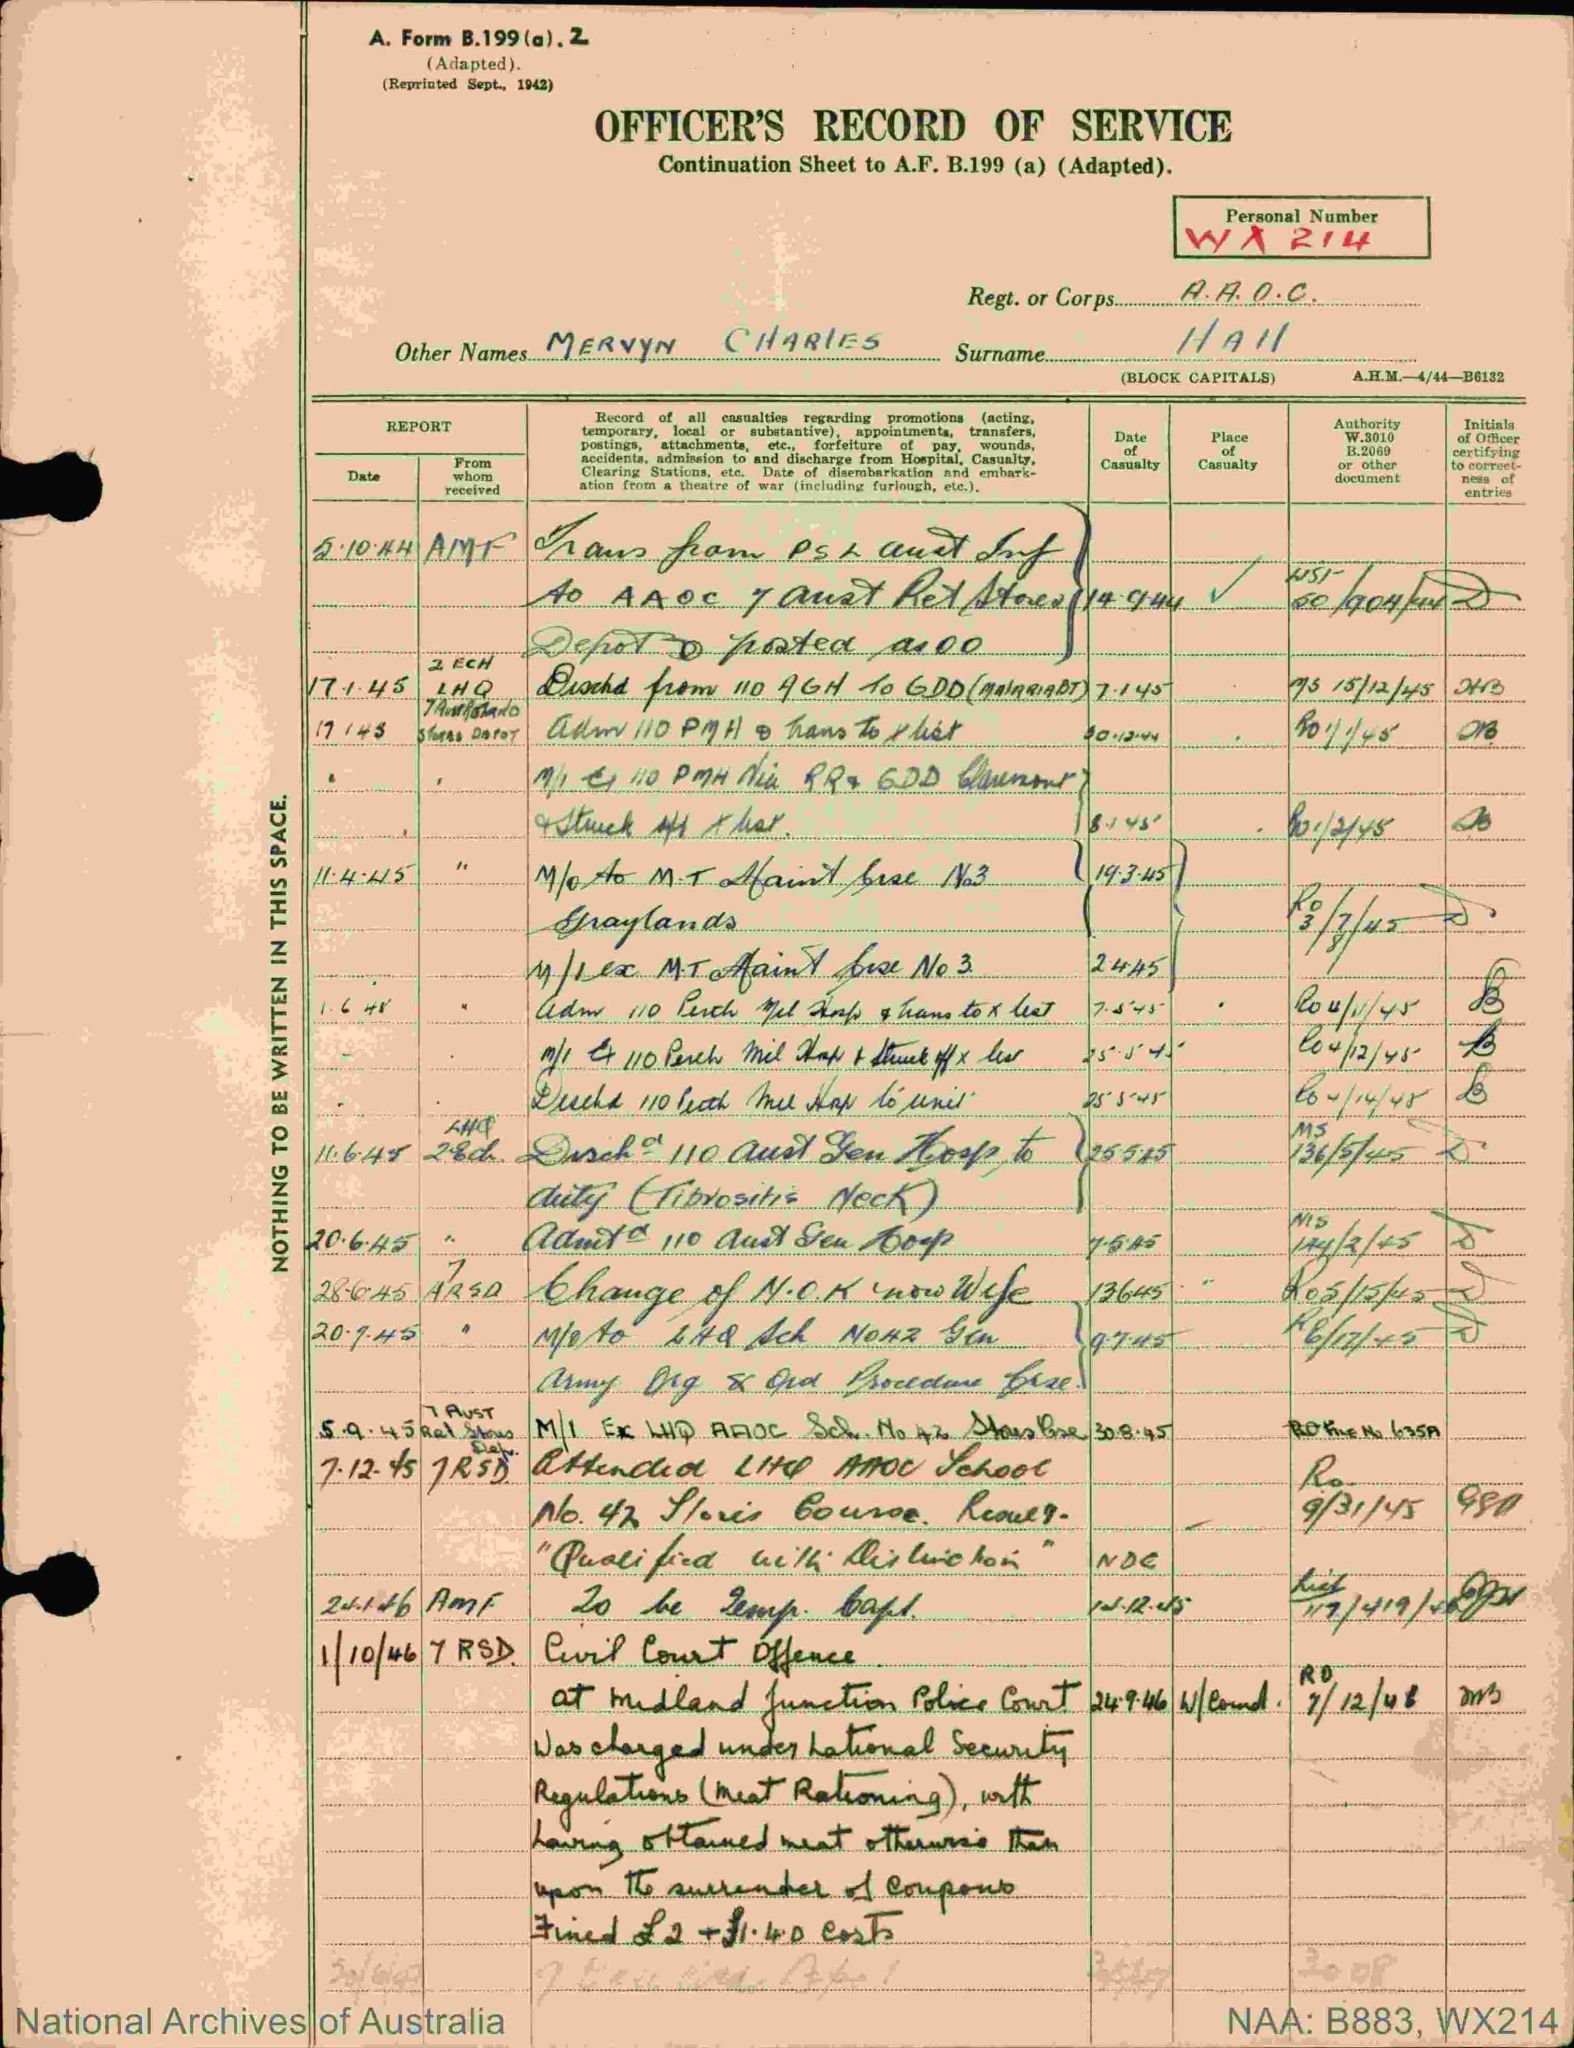 A. Form B.199(a). 2
(Adapted).
(Reprinted Sept., 1942)
OFFICER'S RECORD OF SERVICE
Continuation Sheet to A.F. B.199 (a) (Adapted).
Personal Number
WX 214
Regt. or Corps A.A.O.C.
Other Names MERVYN CHARLES Surname HALL
(BLOCK CAPITALS) A.H.M.—4/44—B6132
REPORT
Date
From whom received
Record of all casualties regarding promotions (acting,
temporary, local or substantive), appointments, transfers,
postings, attachments, etc., forfeiture of pay, wounds,
accidents, admission to and discharge from Hospital, Casualty,
Clearing Stations, etc. Date of disembarkation and embark-
ation from a theatre of war (including furlough, etc.).
Date of Casualty
Place of Casualty
Authority W.3010 B.2069 or other document
Initials of Officer certifying to correct-ness of entries
NOTHING TO BE WRITTEN IN THIS SPACE.
5.10.44 AMF Trans from PSL Aust Inf
to AAOC 7 Aust Ret Stores 14.9.44
Depot & posted as OO
2 ECH
17.1.45 LHQ Dischd from 110 AGH to GDD (MALARIA BT) 7.1.45 MS 15/12/45
17 1 45 Stores Depot Adm 110 PMH & trans to X list 30.12.44 Ro 1/1/45
M/I Ex 110 PMH Via RR & GDD Claremont
& Struck off X list. 8.1.45 Ro 1/2/45
11.4.45 " M/O to M.T Maint Crse No3 19.3.45
Graylands Ro 3/7/45
M/I ex M.T Maint Crse No 3 2.4.45
1.6.45 " Adm 110 Perth Mil Hosp & trans to X list 7.5.45 Ro 4/11/45
M/I Ex 110 Perth Mil Hosp & Struck off X list 25.5.45 Ro 4/12/45
Dischd 110 Perth Mil Hosp to unit 25.5.45 Ro 4/14/45
LHQ MS
11.6.45 2 Ech. Dischd 110 Aust Gen Hosp to 25.5.45 136/5/45
duty (Fibrositis Neck)
MS
20.6.45 " Admtd 110 Aust Gen Hosp 7.5.45
28.6.45 7 ARSD Change of N.O.K now Wife 13.6.45 " Ro 5/15/45
20.7.45 " M/O to LHQ Sch No 42 Gen 9.7.45
Army Org & Ord Procedure Crse.
7 AUST
5.9.45 Ret Stores Dep. M/I Ex LHQ AAOC Sch. No 42 Stores Crse 30.8.45 RO File No 635A
7.12.45 7 RSD Attended LHQ AAOC School Ro
No. 42 Stores Course. Result - 9/31/45
"Qualified with Distinction" NDG
24.1.46 AMF To be Temp. Capt.
1/10/46 7 RSD. Civil Court Offence
at Midland Junction Police Court 24.9.46 W/Comd. RO 7/12/46
Was charged under National Security
Regulations (Meat Rationing), with
having obtained meat otherwise than
upon the surrender of coupons
Fined £2 + £1.4.0 costs
National Archives of Australia NAA: B883, WX214